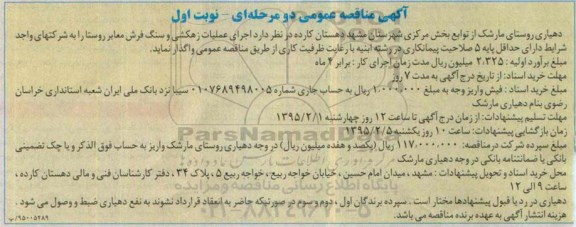 آگهی مناقصه عمومی دو مرحله‌ای - نوبت اول
دهیاری روستای مارشک از توابع بخش مرکزی شهرستان مشهد دهستان کارده در نظر دارد اجرای عملیات زهکشی و سنگ فرش معابر روستا را به شرکتهای واجد
شرایط دارای حداقل پایه ۵ صلاحیت پیمانکاری در رشته ابنیه با رعایت ظرفیت کاری از طریق مناقصه عمومی واگذار نماید.
مبلغ برآورد اولیه : ۲.۳۲۵ میلیون ریال مدت زمان اجرای کار : برابر ۴ ماه
مهلت خرید اسناد : از تاریخ درج آگهی به مدت ۷ روز
مبلغ خرید اسناد : فیش واریز وجه به مبلغ ۱.۰۰۰.۰۰۰ ریال به حساب جاری شماره ۰۱۰۷۶۸۹۴۹۸۰۰۵ سیبا نزد بانک ملی ایران شعبه استانداری خراسان
رضوی بنام دهیاری مارشک
مهلت تسلیم پیشنهادات: از زمان درج آگهی تا ساعت ۱۲ روز چهارشنبه ۱۳۹۵/۲/۱
زمان بازگشایی پیشنهادات: ساعت ۱۰ روز یکشنبه ۱۳۹۵/۲/۵
مبلغ سپرده شرکت در مناقصه: ۱۱۷.۰۰۰.۰۰۰ ریال (یکصد و هفده میلیون ریال) در وجه دهیاری روستای مارشک واریز به حساب فوق الذکر و یا چک تضمینی
بانکی یا ضمانتنامه بانکی در وجه دهیاری مارشک
محل خرید اسناد و تحویل پیشنهادات : مشهد ، میدان امام حسین ، خیابان خواجه ربیع ، خواجه ربیع ۵ ، پلاک ۳۴ ، دفتر کارشناسان فنی و مالی دهستان کارده ،
ساعت ۹ الی ۱۲
دهیاری در رد یا قبول پیشنهادها مختار است . سپرده برندگان اول ، دوم و سوم در صورتیکه حاضر به انعقاد قرارداد نشوند به نفع دهیاری ضبط و وصول می شود .
هزینه انتشار آگهی به عهده برنده مناقصه می باشد.
۹۵۰۰۵۲۸۹/پ
ParsNamadData
پایگاه اطلاع رسانی مناقصه و مزایده
۰۲۱-۸۸۳۴۹۶۷۰-۵